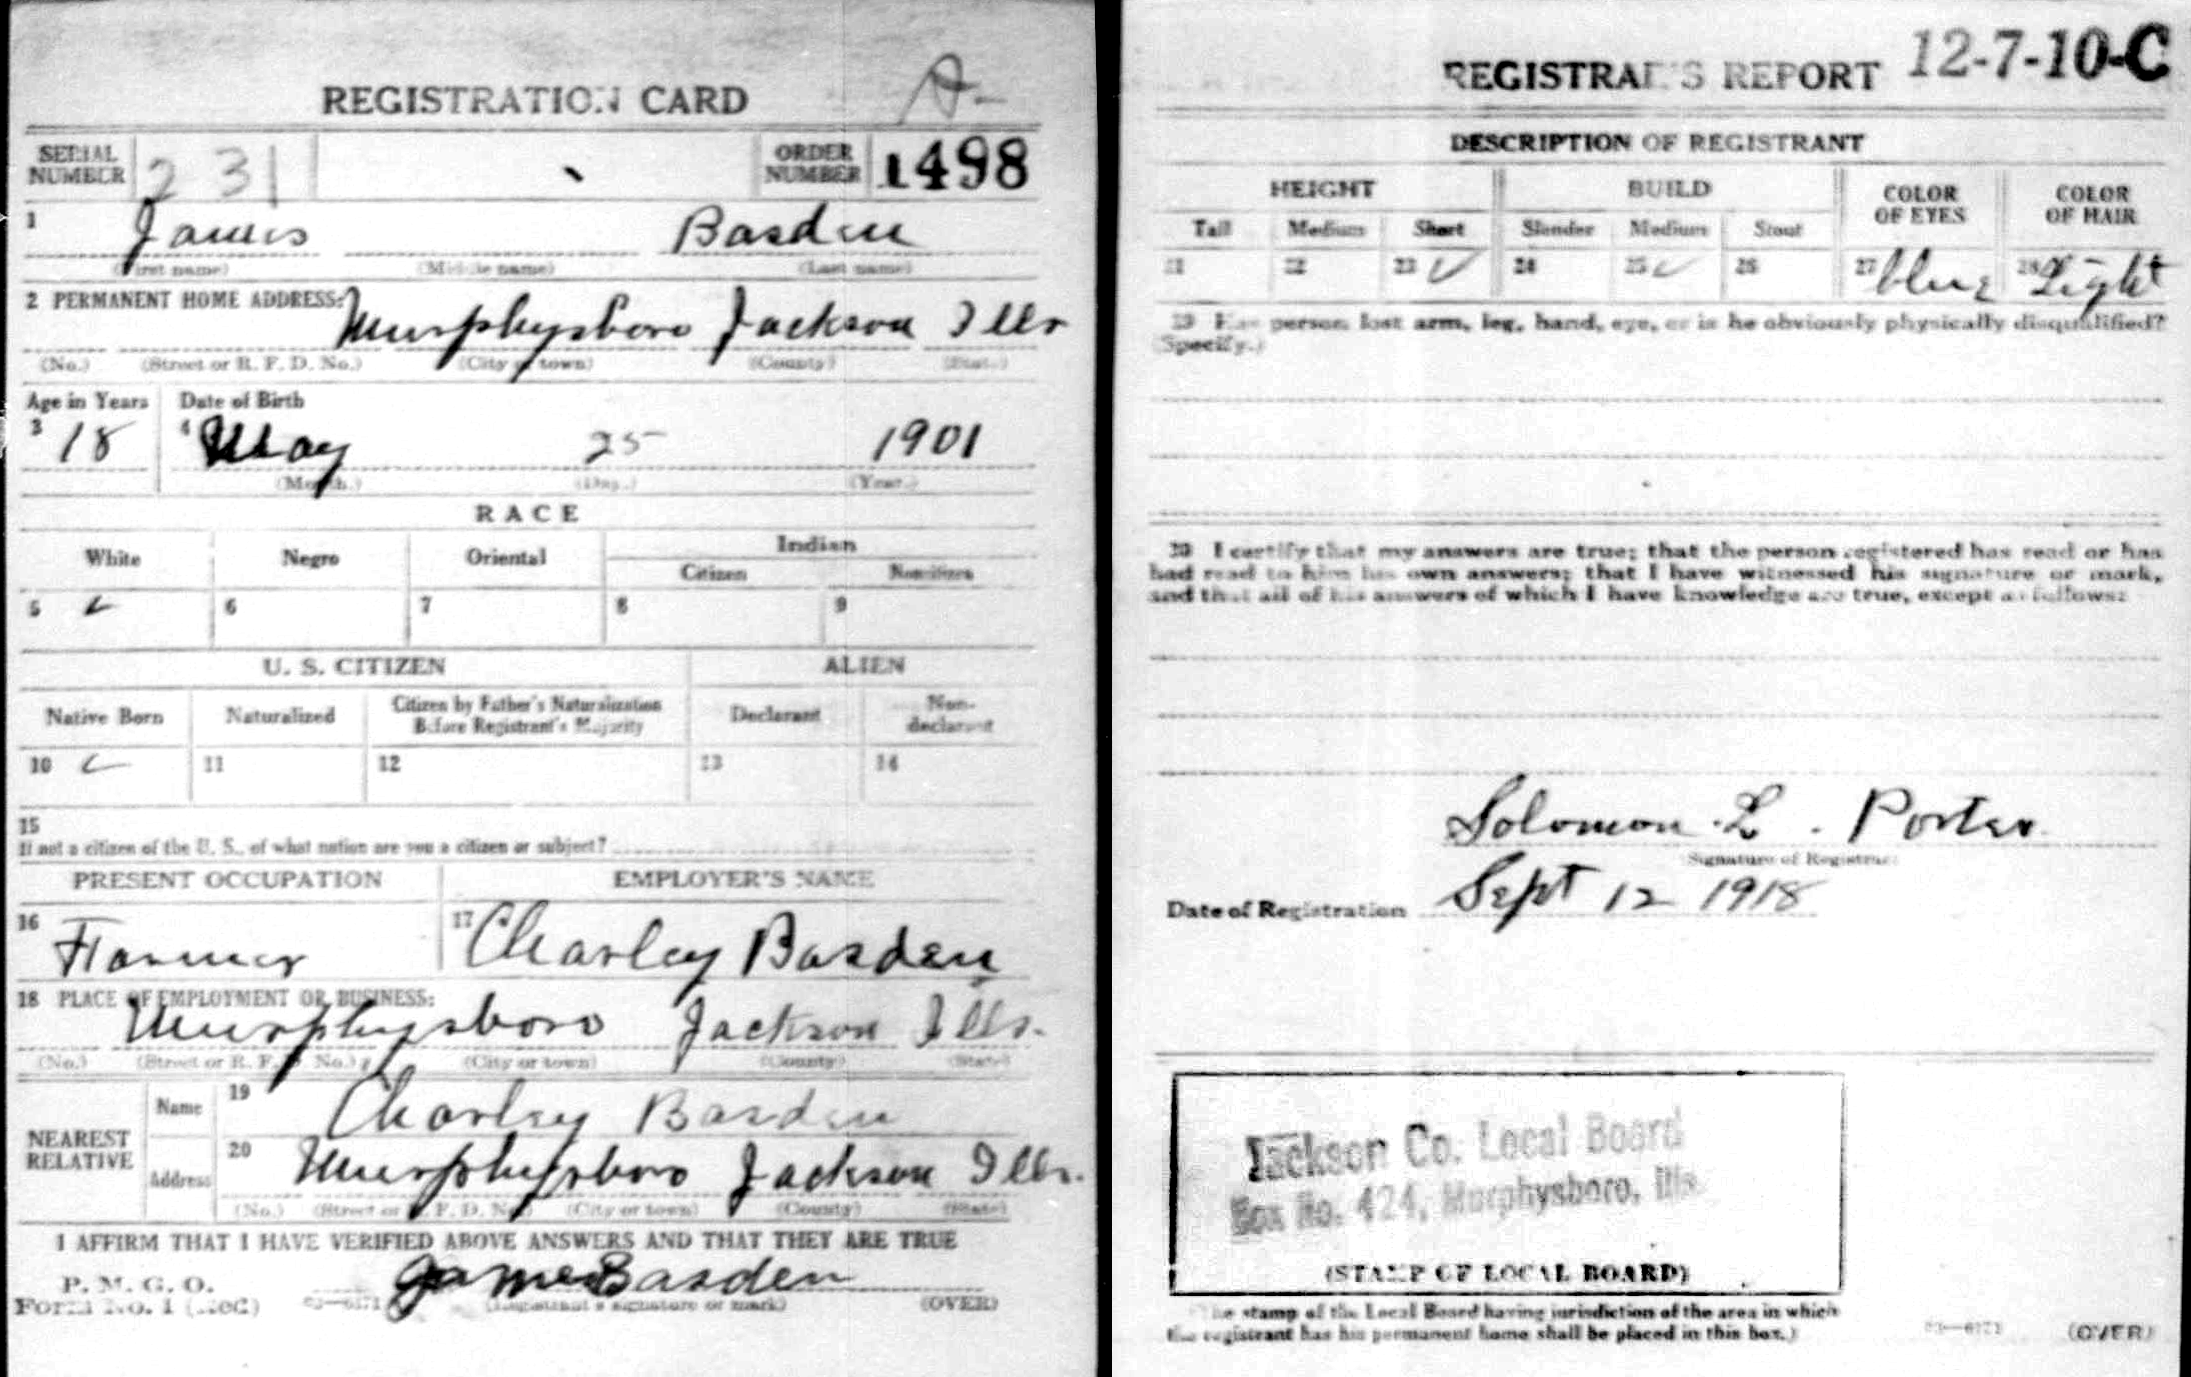 REGISTRATION CARD A-
SERIAL NUMBER 231 ORDER NUMBER 1498
1 James Basden
(First name) (Middle name) (Last name)
2 PERMANENT HOME ADDRESS:
Murphysboro Jackson Ills
(No.) (Street or R. F. D. No.) (City or town) (County) (State)
Age in Years Date of Birth
3 18 4 May 25 1901
(Month.) (Day.) (Year.)
RACE
White Negro Oriental Indian
Citizen Noncitizen
5 ✓ 6 7 8 9
U. S. CITIZEN ALIEN
Native Born Naturalized Citizen by Father's Naturalization Before Registrant's Majority Declarant Non-declarant
10 ✓ 11 12 13 14
15
If not a citizen of the U. S., of what nation are you a citizen or subject?
PRESENT OCCUPATION EMPLOYER'S NAME
16 Farmer 17 Charley Basden
18 PLACE OF EMPLOYMENT OR BUSINESS:
Murphysboro Jackson Ills.
(No.) (Street or R. F. D. No.) (City or town) (County) (State)
NEAREST RELATIVE
Name 19 Charley Basden
Address 20 Murphysboro Jackson Ills.
(No.) (Street or R. F. D. No.) (City or town) (County) (State)
I AFFIRM THAT I HAVE VERIFIED ABOVE ANSWERS AND THAT THEY ARE TRUE
P. M. G. O.
Form No. 1 (Red) 03-6171 James Basden
(Registrant's signature or mark) (OVER)
REGISTRAR'S REPORT 12-7-10-C
DESCRIPTION OF REGISTRANT
HEIGHT BUILD COLOR OF EYES COLOR OF HAIR
Tall Medium Short Slender Medium Stout
21 22 23 ✓ 24 25 ✓ 26 27 blue 28 Light
29 Has person lost arm, leg, hand, eye, or is he obviously physically disqualified?
(Specify.)
30 I certify that my answers are true; that the person registered has read or has
had read to him his own answers; that I have witnessed his signature or mark,
and that all of his answers of which I have knowledge are true, except as follows:
Solomon L. Porter
(Signature of Registrar)
Date of Registration Sept 12 1918
Jackson Co. Local Board
Box No. 424, Murphysboro, Ills.
(STAMP OF LOCAL BOARD)
(The stamp of the Local Board having jurisdiction of the area in which
the registrant has his permanent home shall be placed in this box.)
03-6171 (OVER)